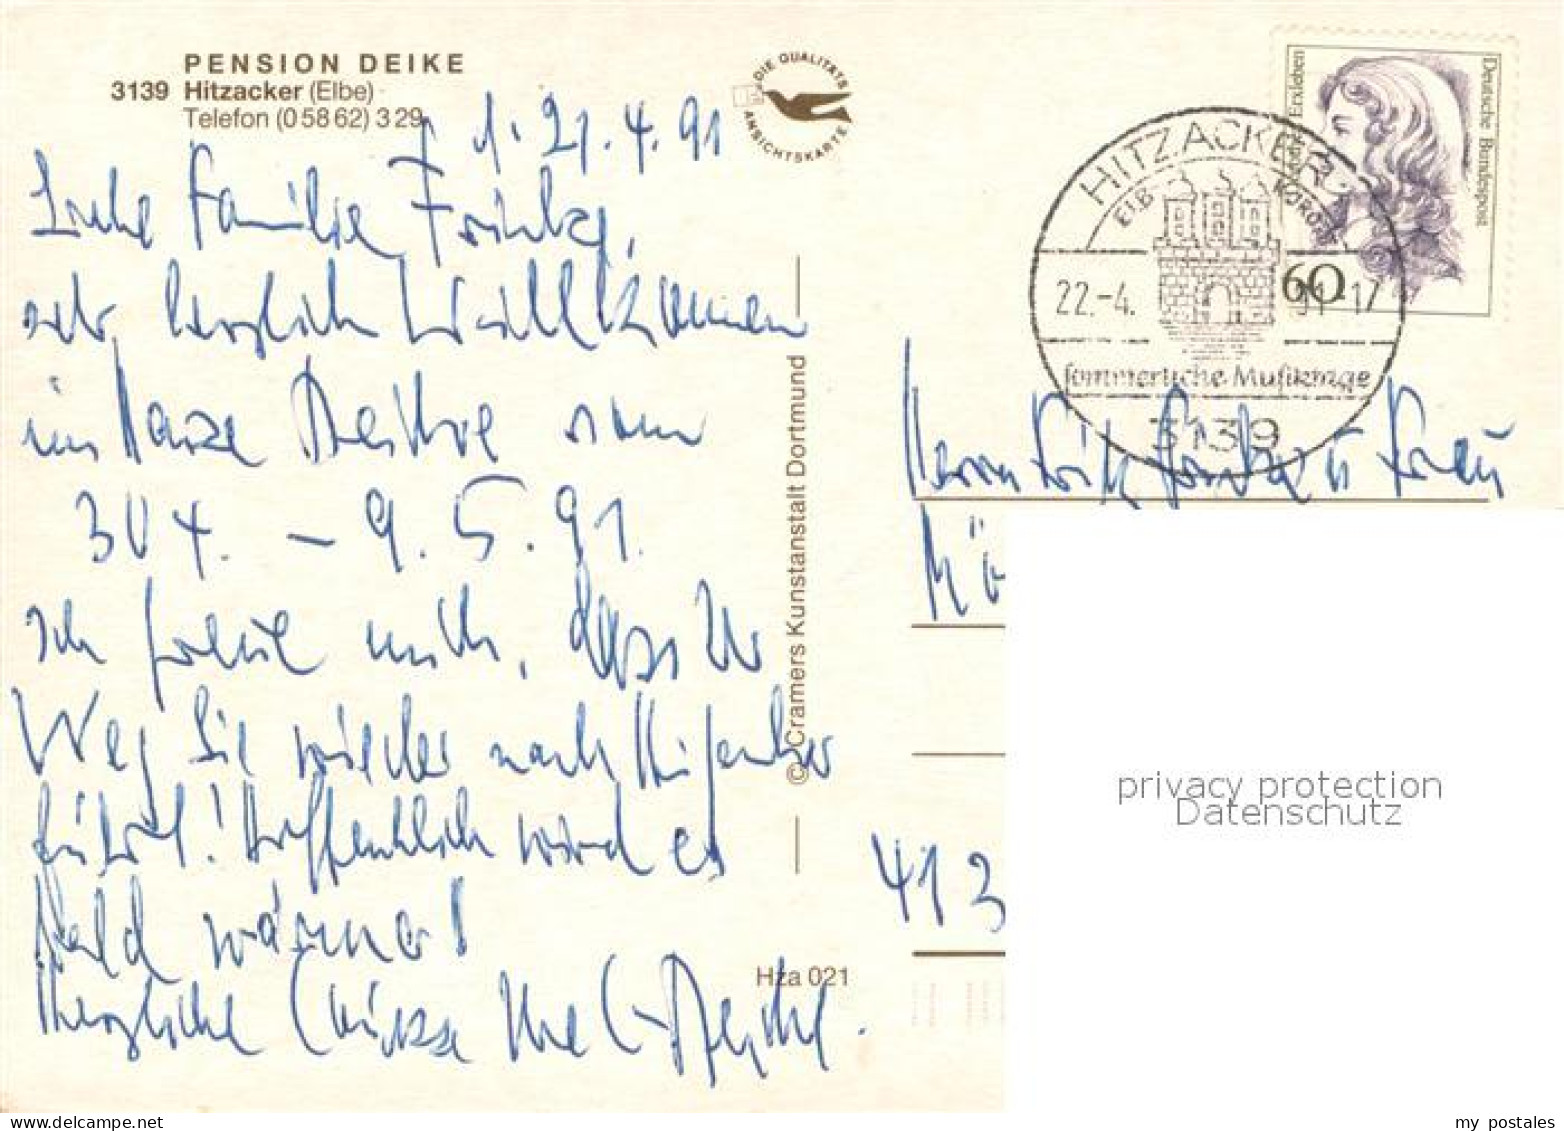 PENSION DEIKE
3139 Hitzacker (Elbe)
Telefon (0 58 62) 3 29
DIE QUALITÄTS
ANSICHTSKARTE
21.4.91
Liebe Familie
sehr herzlich Willkommen
im Hause Deike vom
30 4. - 9. 5. 91.
Ich freue mich, dass Ihr
Weg Sie wieder nach Hitzacker
führt! Hoffentlich wird es
bald wärmer!
Herzliche Grüsse
© Cramers Kunstanstalt Dortmund
Hza 021
Deutsche Bundespost
Erxleben
60
HITZACKER
ELB KURORT
22.-4. 91-17
sommerliche Musiktage
3139
Herrn Fritz u Frau
413
privacy protection
Datenschutz
my postales